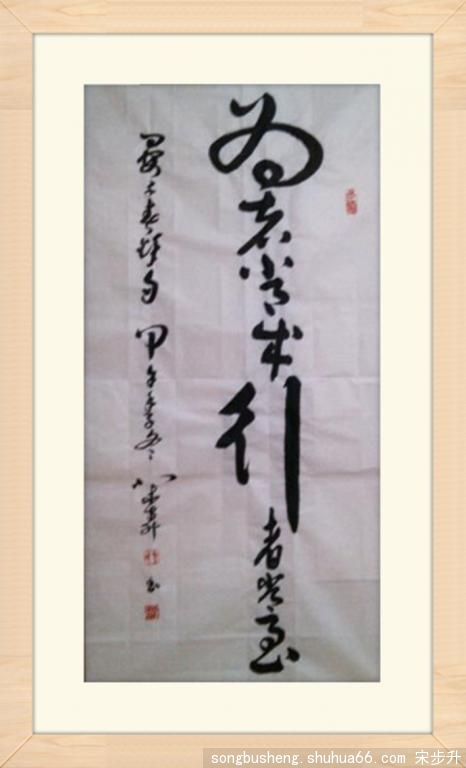 为者常成行
者常至
晏子春秋句 甲午季冬 步升 书
songbusheng.shuhua66.com 宋步升